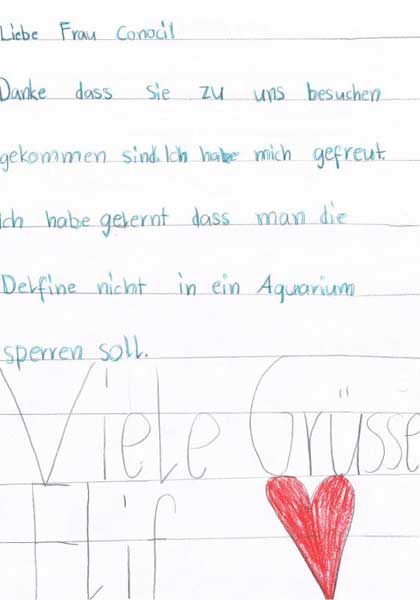 Liebe Frau Conocil
Danke dass Sie zu uns besuchen
gekommen sind. Ich habe mich gefreut.
Ich habe gelernt dass man die
Delfine nicht in ein Aquarium
sperren soll.
Viele Grüsse
Elif